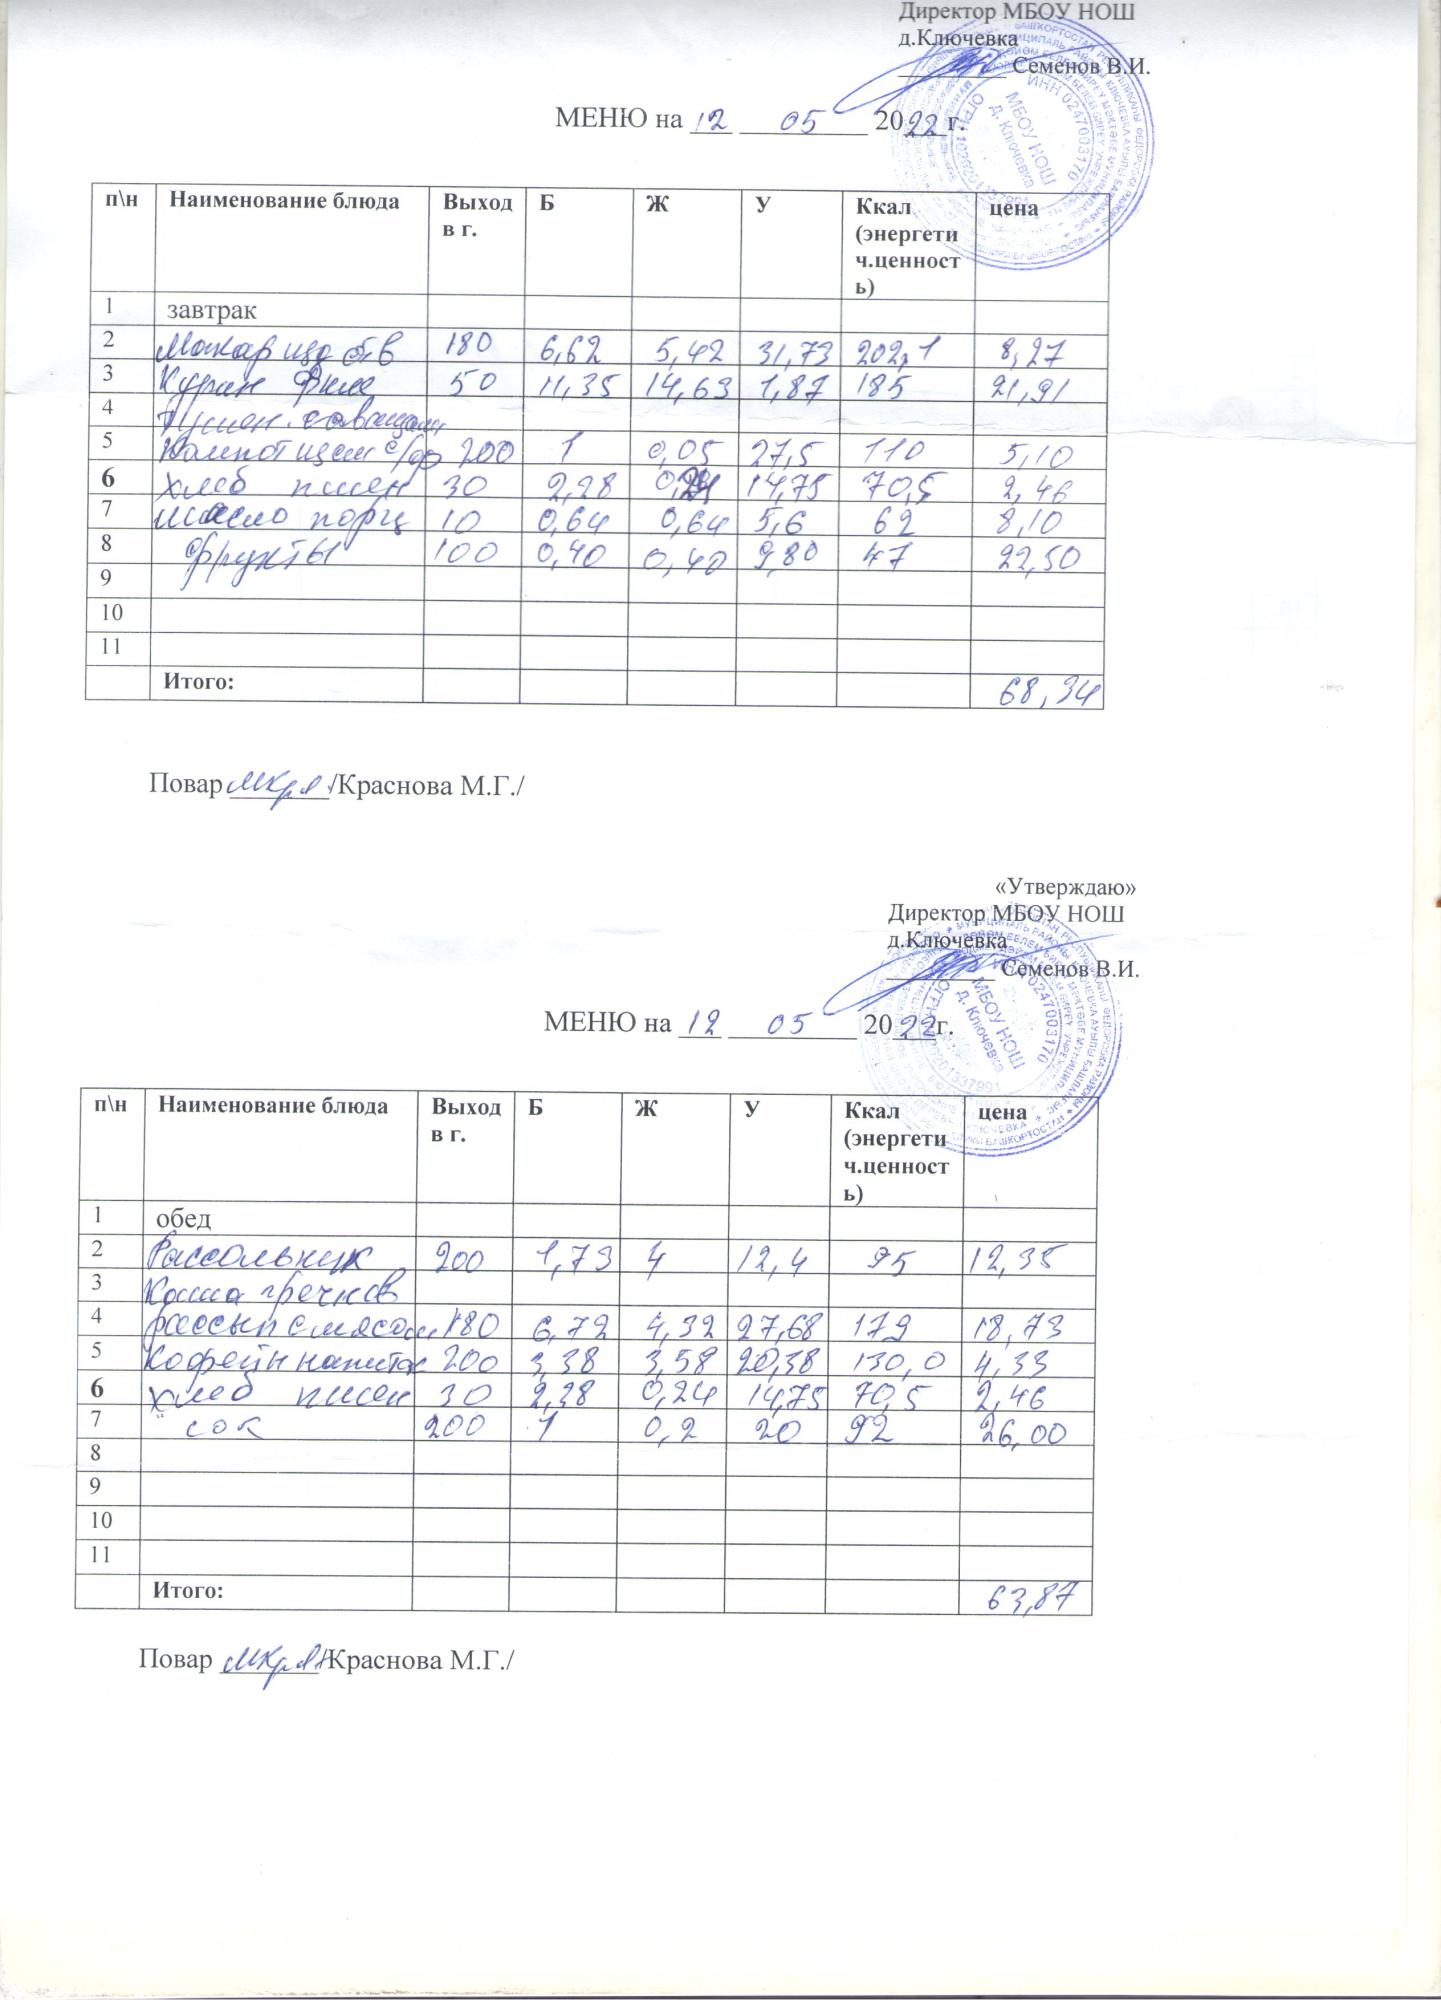 Директор МБОУ НОШ
д.Ключевка
Семенов В.И.
МЕНЮ на 12 05 2022г.
п\н Наименование блюда Выход в г. Б Ж У Ккал (энергетич.ценность) цена
1 завтрак
2 Макар изд отв 180 6,62 5,42 31,73 202,1 8,27
3 Курин филе 50 11,35 14,63 1,87 185 21,91
4 тушен. с овощами
5 Компот из с/фр 200 1 0,05 27,5 110 5,10
6 хлеб пшен 30 2,28 14,75 70,5 2,46
7 масло порц 10 0,64 0,64 5,6 62 8,10
8 фрукты 100 0,40 0,40 9,80 47 22,50
9
10
11
Итого: 68,34
Повар /Краснова М.Г./
«Утверждаю»
Директор МБОУ НОШ
д.Ключевка
Семенов В.И.
МЕНЮ на 12 05 2022г.
п\н Наименование блюда Выход в г. Б Ж У Ккал (энергетич.ценность) цена
1 обед
2 Рассольник 200 1,73 4 12,4 95 12,35
3 Каша гречнев
4 рассып с мясом 180 6,72 4,32 27,68 179 18,73
5 Кофейн напиток 200 3,38 3,58 20,38 130,0 4,33
6 хлеб пшен 30 2,28 0,24 14,75 70,5 2,46
7 сок 200 1 0,2 20 92 26,00
8
9
10
11
Итого: 63,87
Повар /Краснова М.Г./
ИНН 0247003170
МБОУ НОШ
д. Ключевка
ОГРН 1020201337991